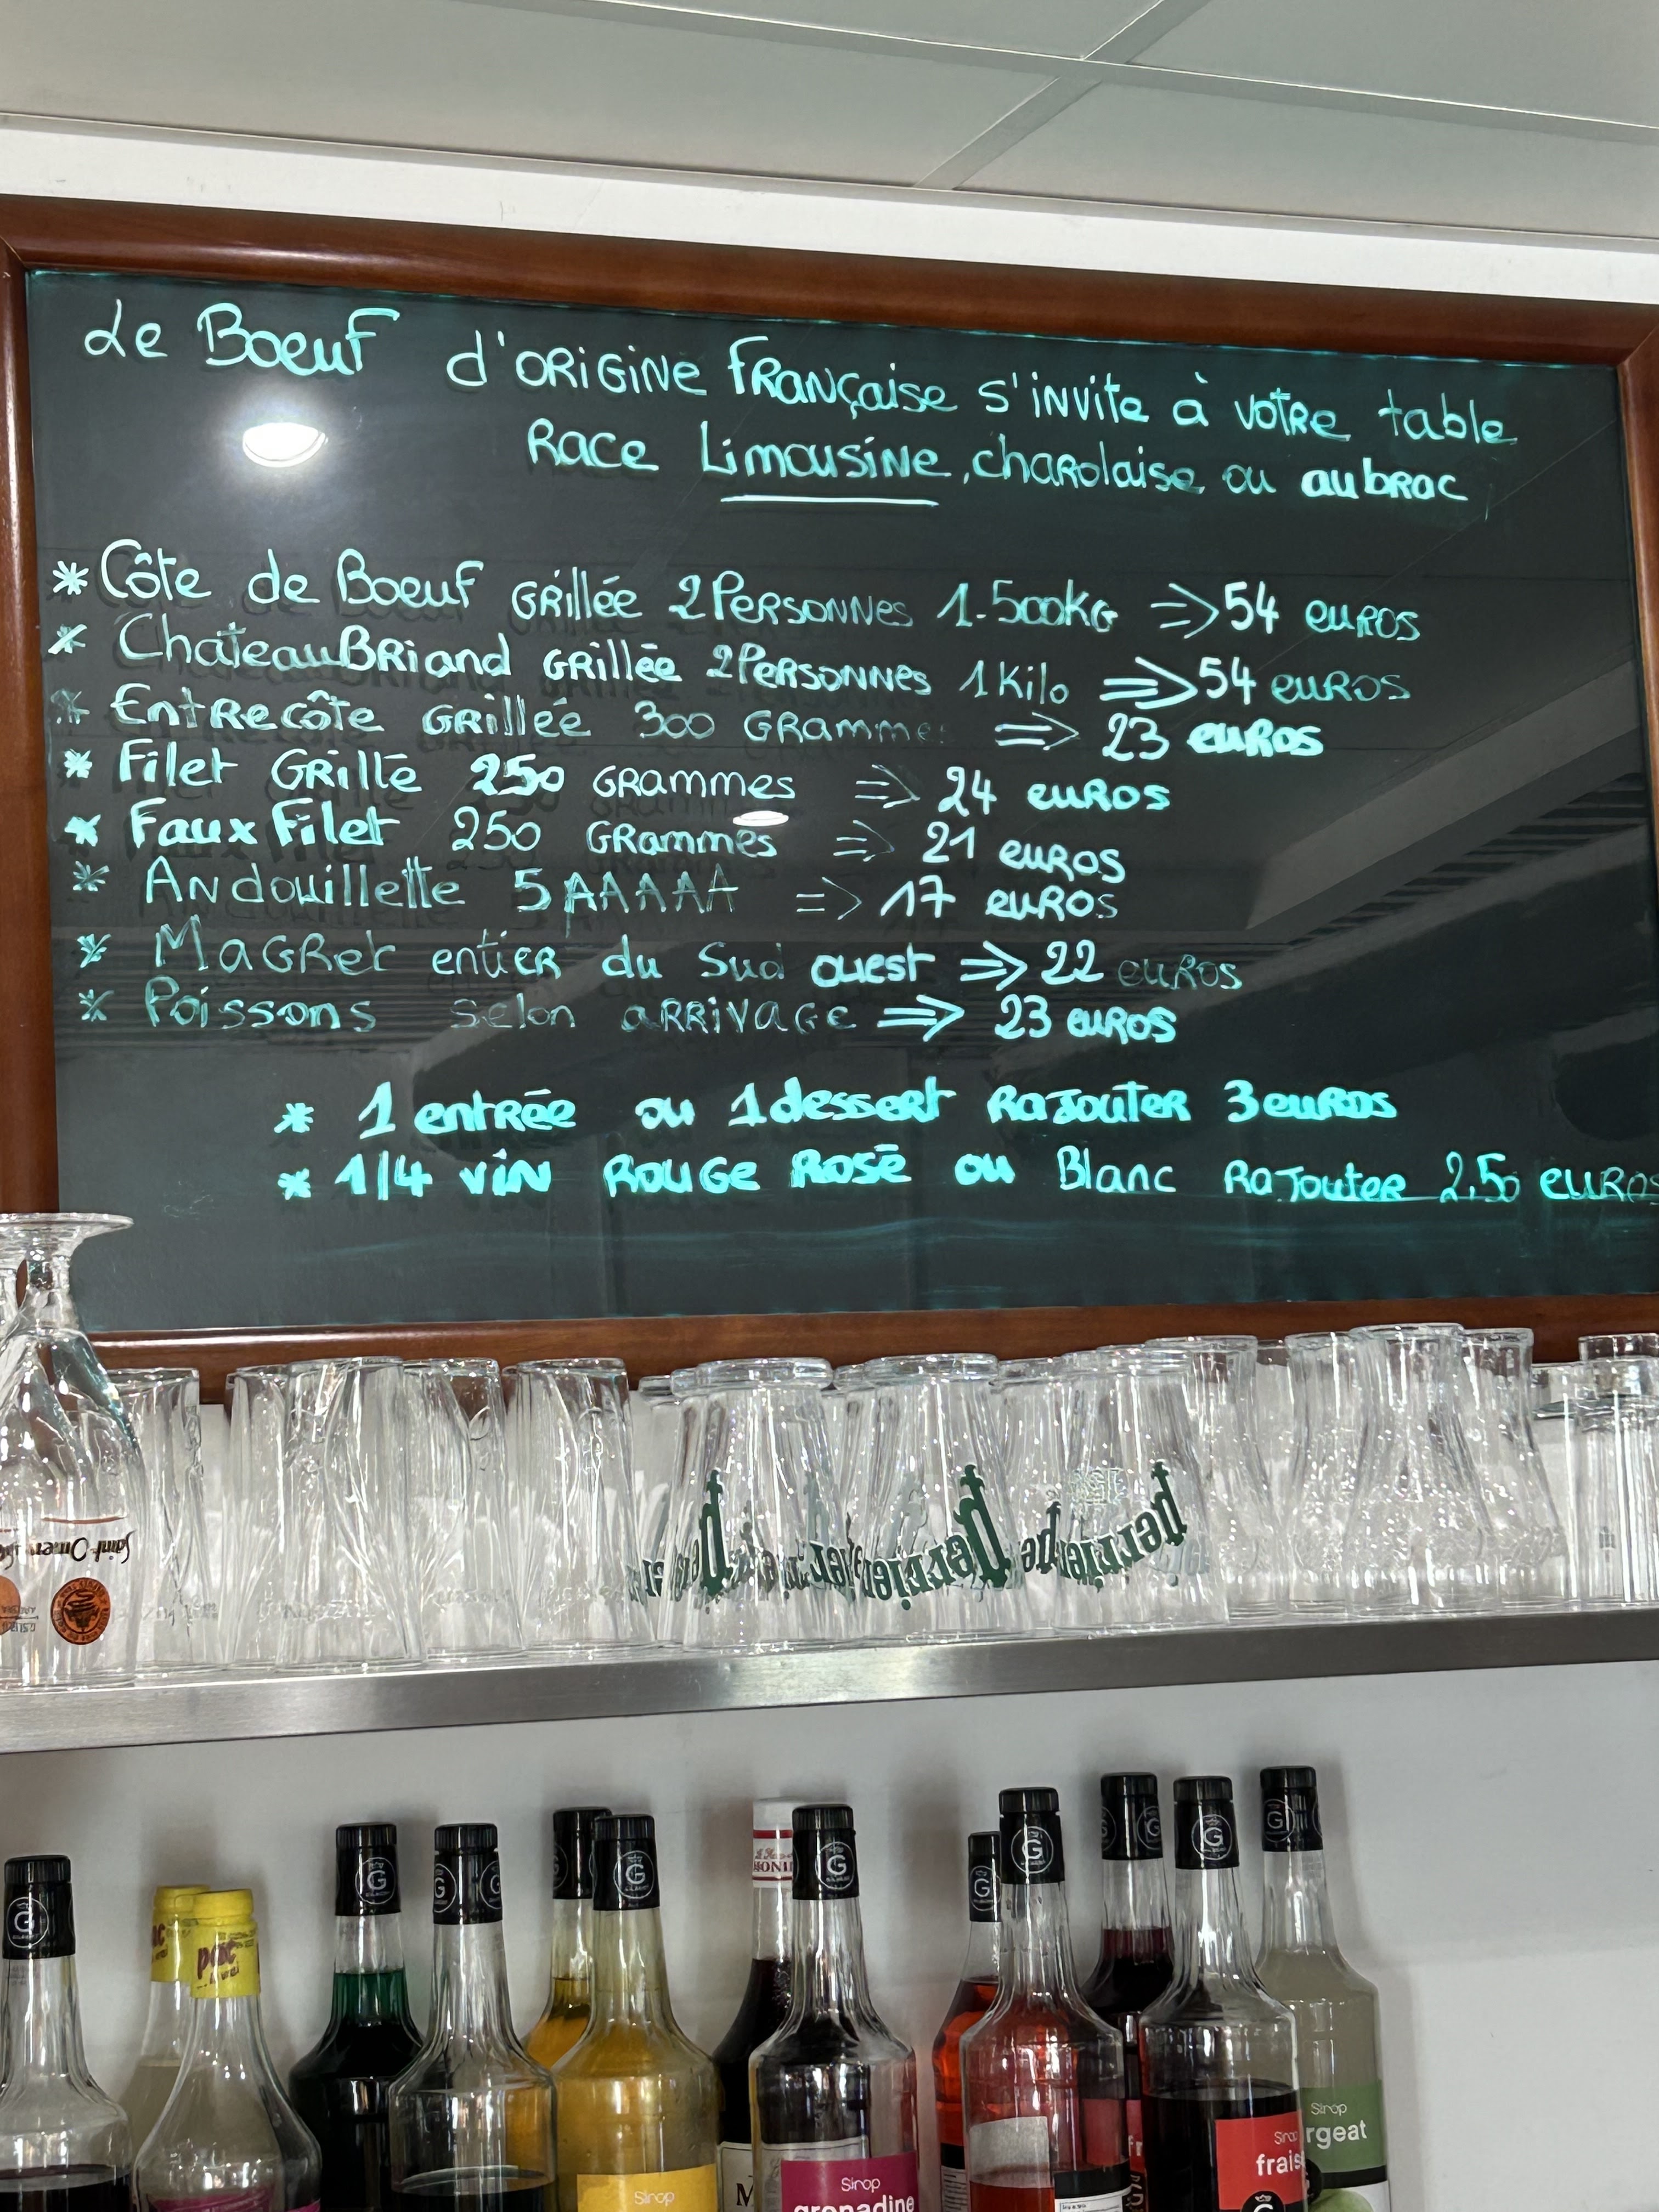 Le Boeuf d'origine Française s'invite à votre table
Race Limousine, charolaise ou aubrac
* Côte de Boeuf Grillée 2 Personnes 1.500KG => 54 euros
* ChateauBriand Grillée 2 Personnes 1 Kilo => 54 euros
* Entrecôte Grillée 300 Grammes => 23 euros
* Filet Grillé 250 Grammes => 24 euros
* Faux Filet 250 Grammes => 21 euros
* Andouillette 5 AAAAA => 17 euros
* Magret entier du Sud ouest => 22 euros
* Poissons selon arrivage => 23 euros
* 1 entrée ou 1 dessert Rajouter 3 euros
* 1/4 vin Rouge Rosé ou Blanc Rajouter 2,50 euros
Saint-Omer
perrier perrier perrier
G G G G G G G G
pac
Sirop
Sirop
grenadine
Sirop
frais
Sirop
rgeat